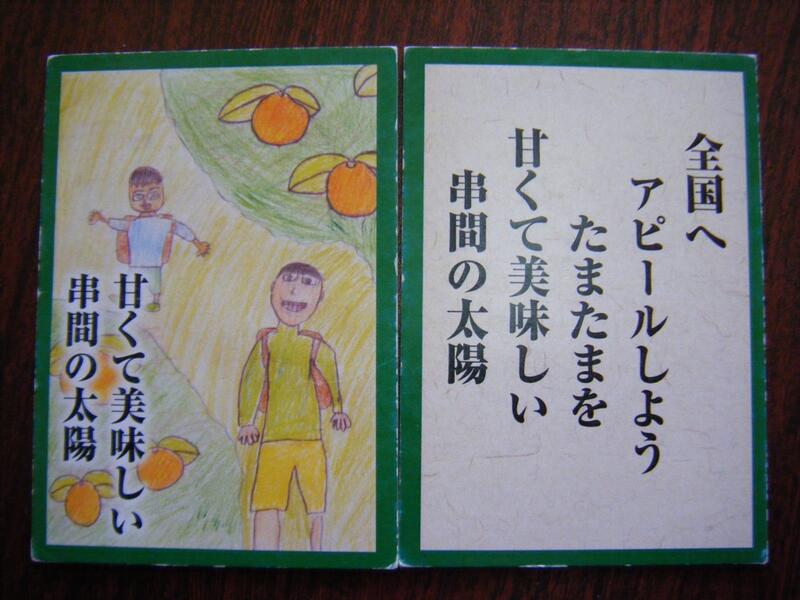 甘くて美味しい
串間の太陽
全国へ
アピールしよう
たまたまを
甘くて美味しい
串間の太陽